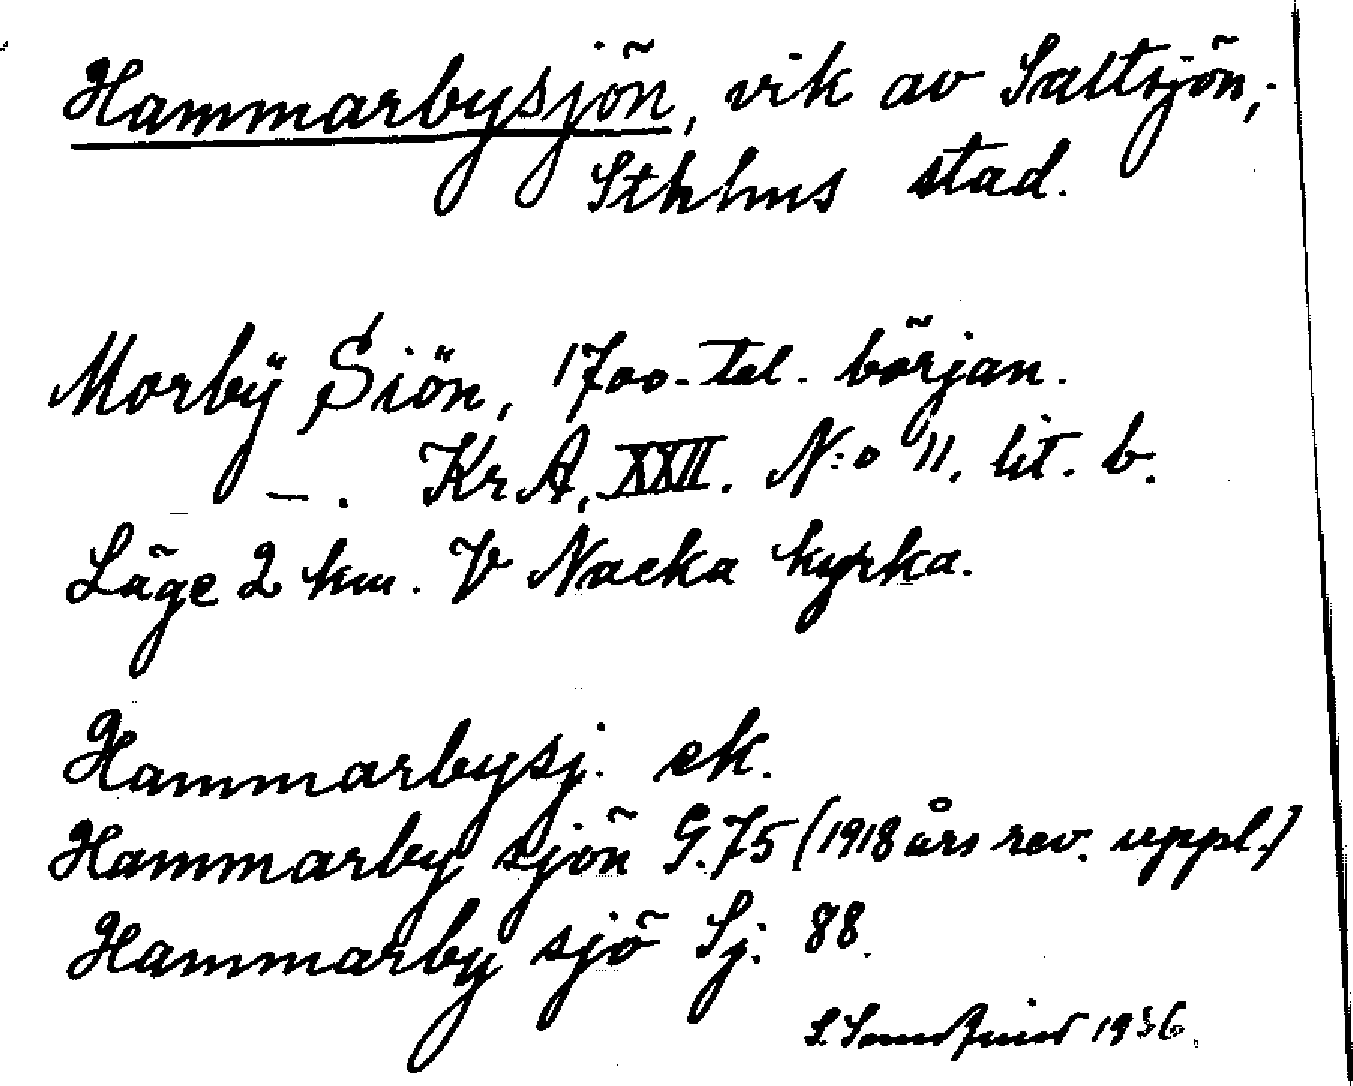 Hammarbysjön, vik av Saltsjön,
Sthlms stad.
Morbÿ Siön, 1700-tal. början.
—. KrA, XXII. N:o 11. lit. b.
Läge 2 km. V Nacka kyrka.
Hammarbysj. ek.
Hammarby sjön G.75 (1918 års rev. uppl.)
Hammarby sjö Sj. 88.
S. 1936.